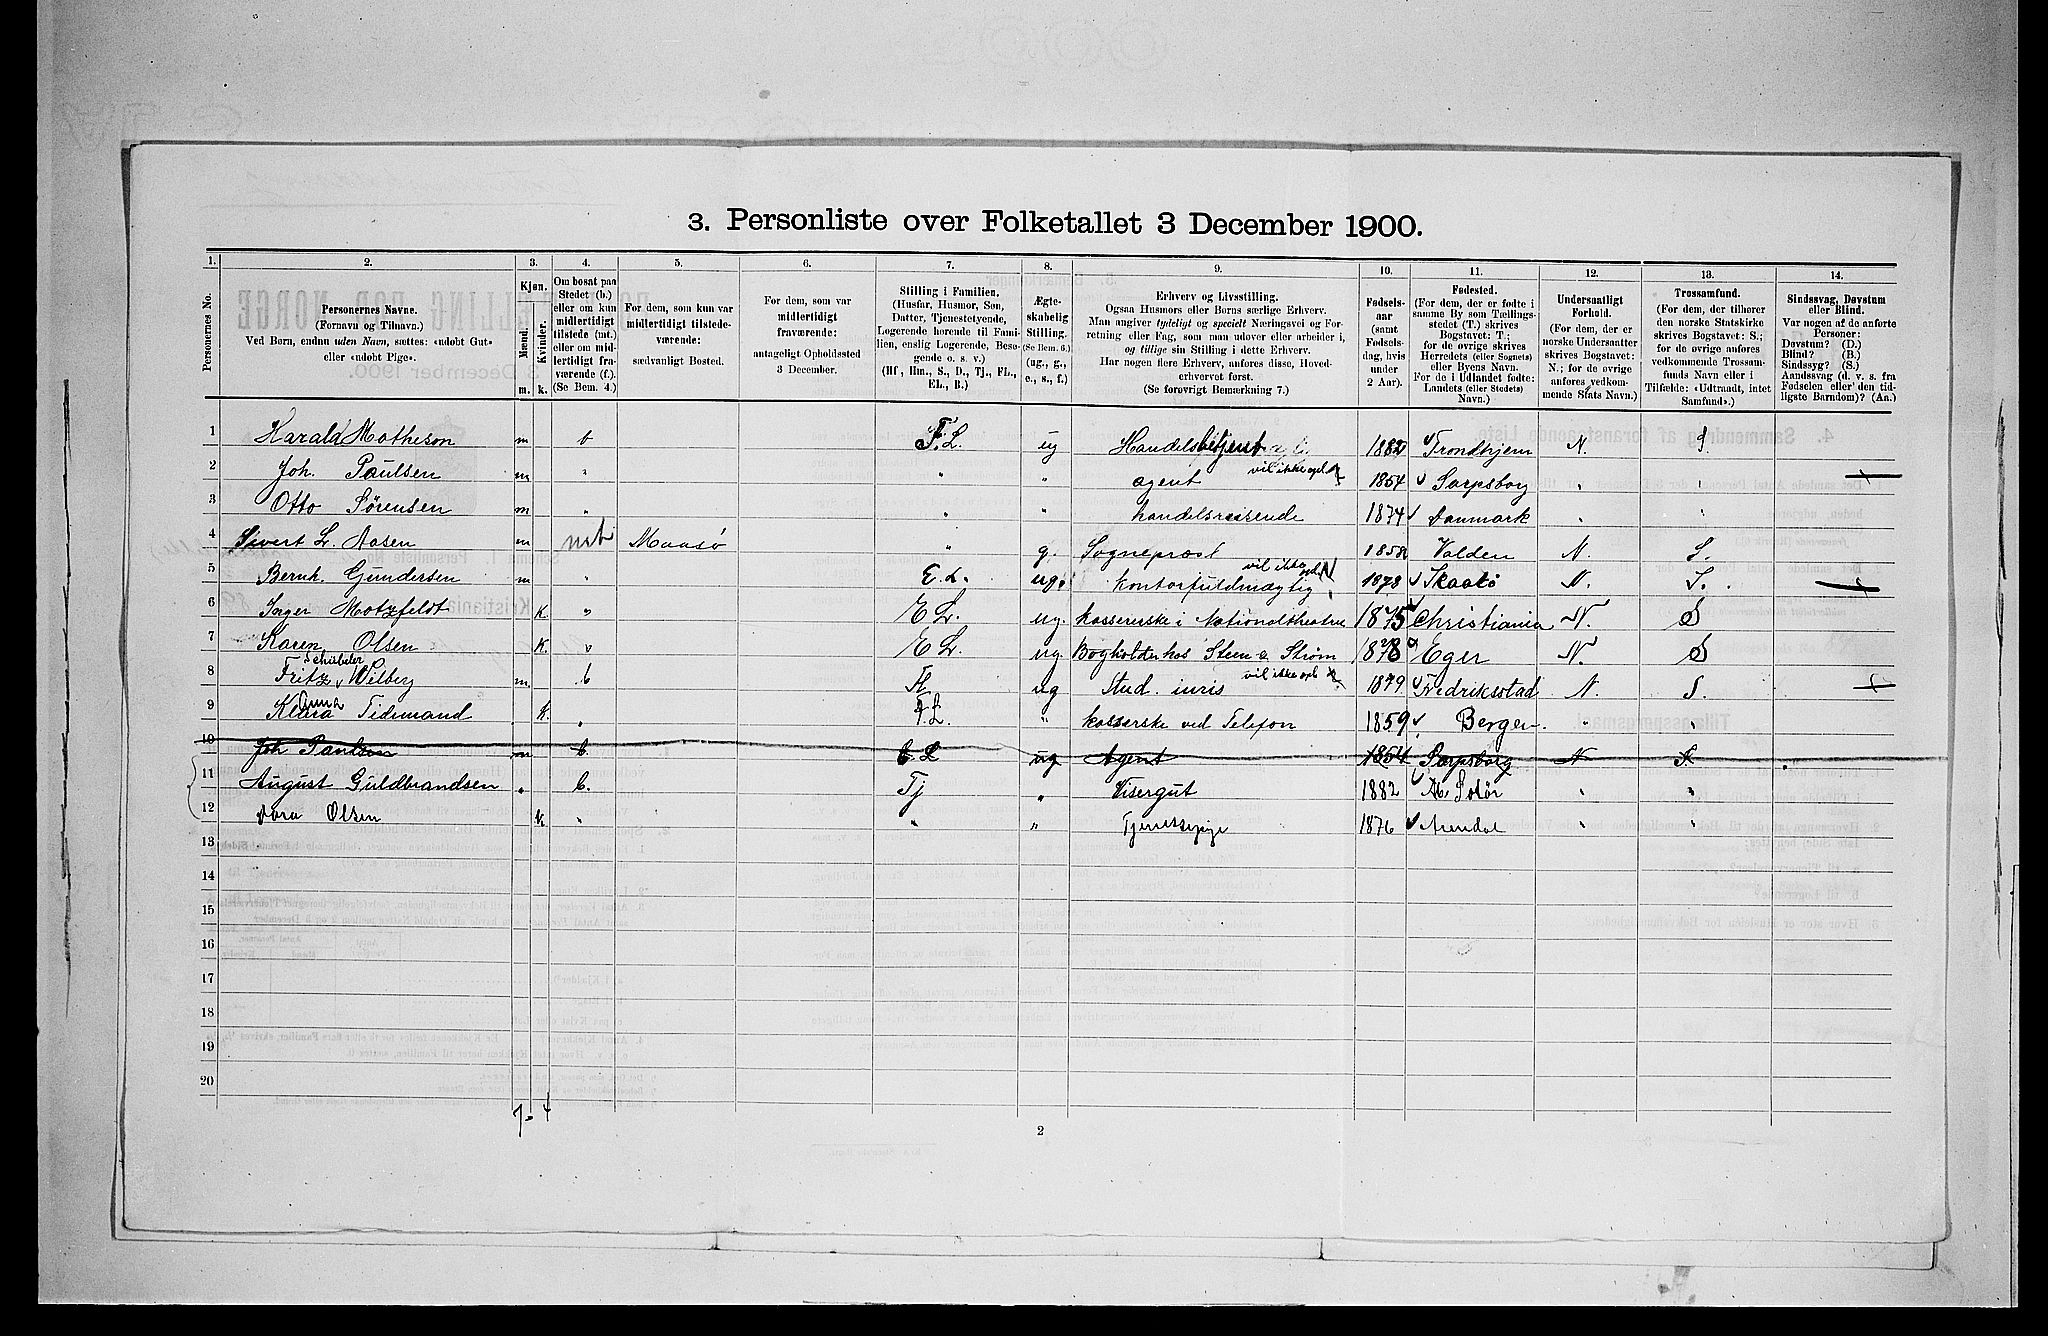 3. Personliste over Folketallet 3 December 1900.
1. 2. 3. 4. 5. 6. 7. 8. 9. 10. 11. 12. 13. 14.
Personernes No.
Personernes Navne.
(Fornavn og Tilnavn.)
Ved Børn, endnu uden Navn, sættes: «udøbt Gut»
eller «udøbt Pige».
Kjøn.
Mænd.
Kvinder.
m. k.
Om bosat paa
Stedet (b.)
eller om kun
midlertidigt
tilstede (mt.)
eller om mid-
lertidigt fra-
værende (f.).
(Se Bem. 4.)
For dem, som kun var
midlertidigt tilstede-
værende:
sædvanligt Bosted.
For dem, som var
midlertidigt
fraværende:
antageligt Opholdssted
3 December.
Stilling i Familien.
(Husfar, Husmor, Søn,
Datter, Tjenestetyende,
Logerende hørende til Fami-
lien, enslig Logerende, Besø-
gende o. s. v.)
(Hf., Hm., S., D., Tj., FL.,
EL., B.)
Ægte-
skabelig
Stilling.
(Se Bem. 6.)
(ug., g.,
e., s., f.)
Erhverv og Livsstilling.
Ogsaa Husmors eller Børns særlige Erhverv.
Man angiver tydeligt og specielt Næringsvei og For-
retning eller Fag, som man udøver eller arbeider i,
og tillige sin Stilling i dette Erhverv.
Har nogen flere Erhverv, anføres disse, Hoved-
erhvervet først.
(Se forøvrigt Bemærkning 7.)
Fødsels-
aar
(samt
Fødsels-
dag, hvis
under
2 Aar).
Fødested.
(For dem, der er fødte i
samme By som Tællings-
stedet (T.) skrives
Bogstavet: T.;
for de øvrige skrives
Herredets (eller Sognets)
eller Byens Navn.
For de i Udlandet fødte:
Landets (eller Stedets)
Navn.)
Undersaatligt
Forhold.
(For dem, der er
norske Undersaatter
skrives Bogstavet:
N.; for de øvrige
anføres vedkom-
mende Stats Navn.)
Trossamfund.
(For dem, der tilhører
den norske Statskirke
skrives Bogstavet: S.;
for de øvrige anføres
vedkommende Trossam-
funds Navn eller i
Tilfælde: «Udtraadt, intet
Samfund».)
Sindssvag, Døvstum
eller Blind.
Var nogen af de anførte
Personer:
Døvstum? (D.)
Blind? (B.)
Sindssyg? (S.)
Aandssvag (d. v. s. fra
Fødselen eller den tid-
ligste Barndom)? (Aa.)
1 Harald Matheson m b F.L. ug Handelsbetjent 1882 Trondhjem N. S
2 Joh. Paulsen m " " " agent vil ikke opl 1854 Sarpsborg " "
3 Otto Sørensen m " " " handelsreisende 1874 Danmark " "
4 Sivert L. Aasen m mt Maasø " g. Sogneprest 1858 Volden N. S.
5 Bernh. Gundersen m " E.L. ug. kontorfuldmægtig vil ikke opl 1878 Skaatø N. S.
6 Inger Motzfeldt K. " E L. ug. kassererske i Nationaltheatret 1875 Christiania N. S
7 Karen Olsen K. " E L. ug Bogholder hos Steen & Strøm 1878 Eger N. S
8 Fritz Schibeler Wilberg m. b ug Stud. iuris vil ikke opl 1879 Fredriksstad N. S.
9 Klara Anna Tidemand K. " F.L. " kasserske ved Telefon 1859 Bergen " "
10 Joh Paulsen m b. E L ug Agent 1854 Sarpsborg N S.
11 August Guldbrandsen " b. Tj " Visergut 1882 Solør " "
12 Olsen K " " " Tjenestepige 1876 Arendal " "
13
14
15
16
17
18
19
20
7 - 4
2